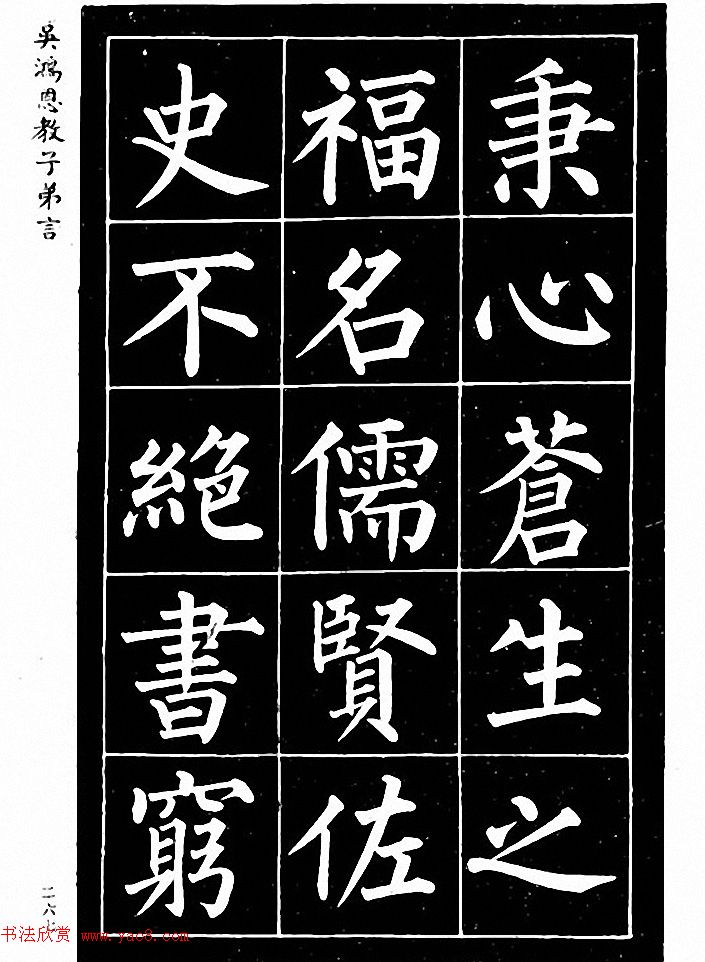 秉心蒼生之
福名儒賢佐
史不絕書窮
吳鴻恩教子弟言
二六七
书法欣赏 www.yac8.com